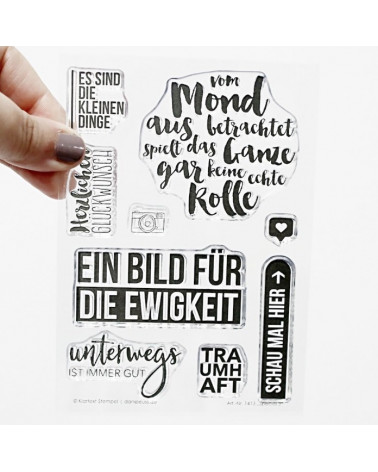 ES SIND
DIE
KLEINEN
DINGE
vom
Mond
aus betrachtet
spielt das Ganze
gar keine echte
Rolle
Herzlichen
GLÜCKWUNSCH
EIN BILD FÜR
DIE EWIGKEIT
SCHAU MAL HIER →
unterwegs
IST IMMER GUT
TRA
UMH
AFT